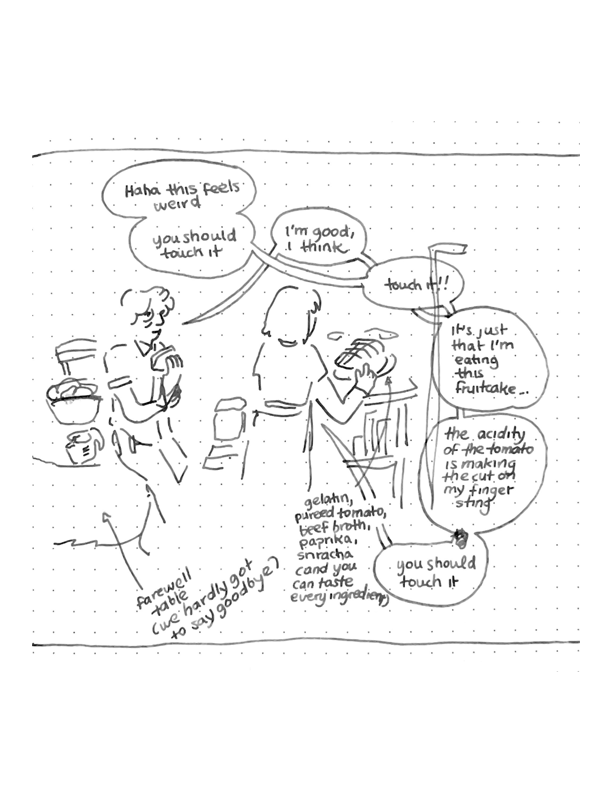 Haha this feels
weird
you should
touch it
I'm good,
I think
touch it!!
It's just
that I'm
eating
this
fruitcake...
the acidity
of the tomato
is making
the cut on
my finger
sting
you should
touch it
gelatin,
pureed tomato,
beef broth,
paprika,
sriracha
cand you
can taste
every ingredient)
farewell
table
(we hardly got
to say goodbye?)